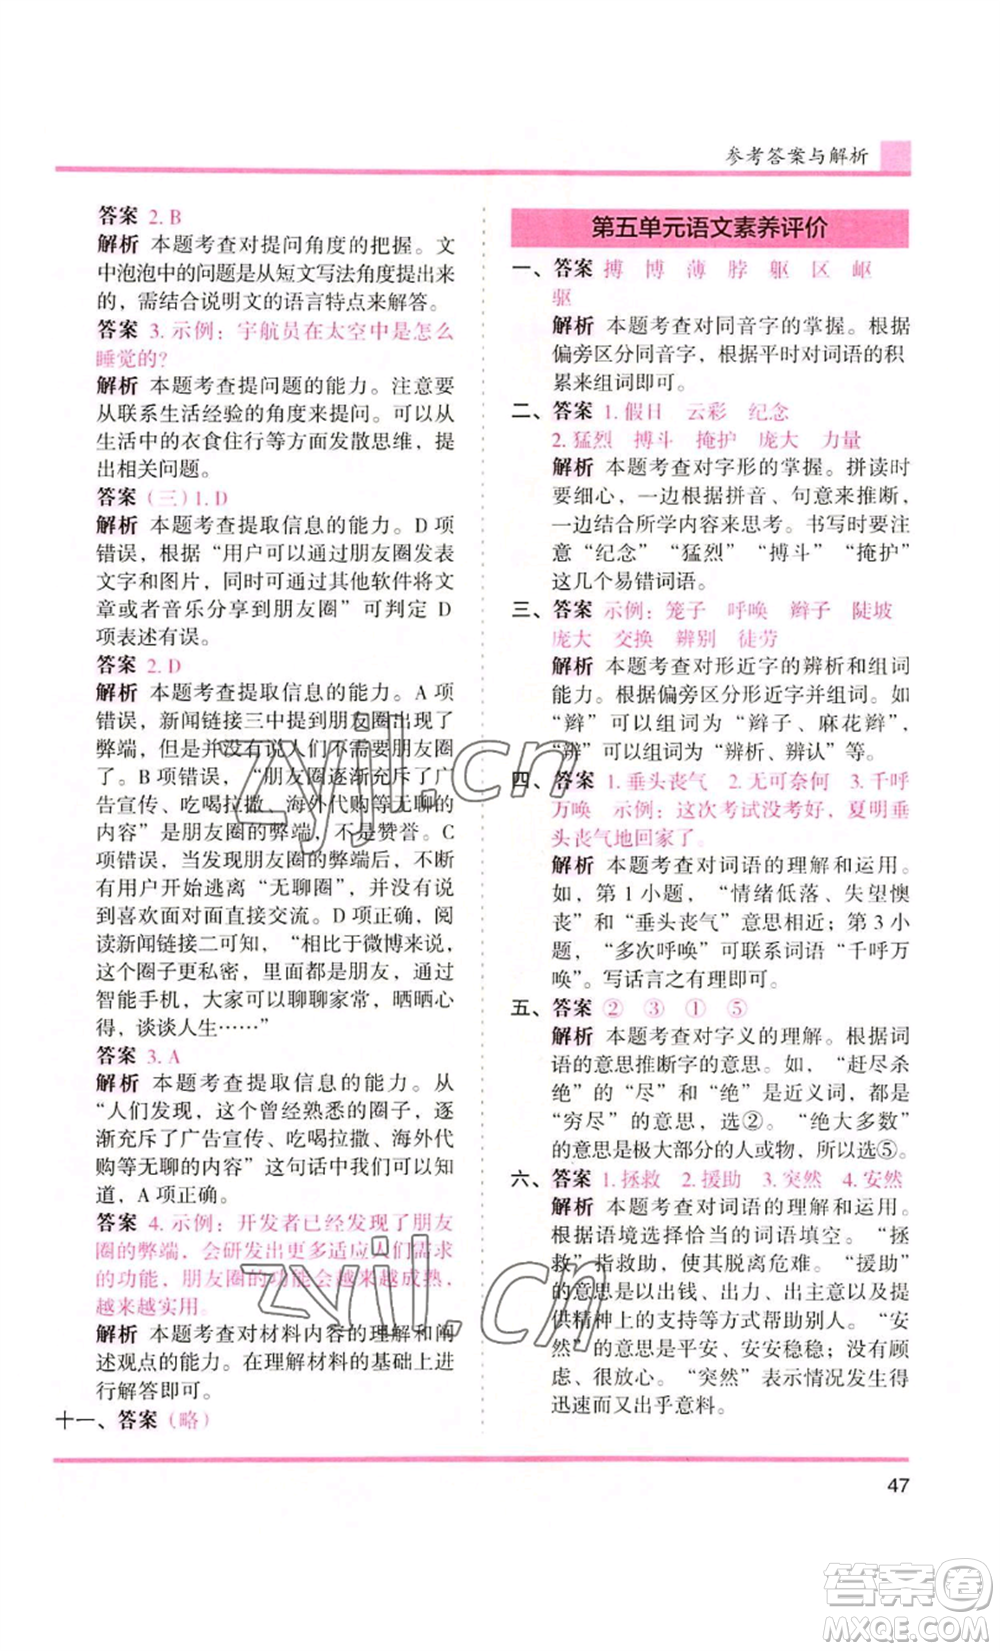 参考答案与解析
答案 2. B
解析 本题考查对提问角度的把握。文
中泡泡中的问题是从短文写法角度提出来
的，需结合说明文的语言特点来解答。
答案 3. 示例：宇航员在太空中是怎么
睡觉的?
解析 本题考查提问题的能力。注意要
从联系生活经验的角度来提问。可以从
生活中的衣食住行等方面发散思维，提
出相关问题。
答案 （三）1. D
解析 本题考查提取信息的能力。D 项
错误，根据“用户可以通过朋友圈发表
文字和图片，同时可通过其他软件将文
章或者音乐分享到朋友圈”可判定 D
项表述有误。
答案 2. D
解析 本题考查提取信息的能力。A 项
错误，新闻链接三中提到朋友圈出现了
弊端，但是并没有说人们不需要朋友圈
了。B 项错误，“朋友圈逐渐充斥了广
告宣传、吃喝拉撒、海外代购等无聊的
内容”是朋友圈的弊端，不是赞誉。C
项错误，当发现朋友圈的弊端后，不断
有用户开始逃离“无聊圈”，并没有提
到喜欢面对面直接交流。D 项正确，阅
读新闻链接二可知，“相比于微博来说，
这个圈子更私密，都是朋友，通过
智能手机，大家可以聊聊家常，晒晒心
得，谈谈人生……”
答案 3. A
解析 本题考查提取信息的能力。从
“人们发现，这个曾经熟悉的圈子，逐
渐充斥了广告宣传、吃喝拉撒、海外代
购等无聊的内容”这句话中我们可以知
道，A 项正确。
答案 4. 示例：开发者已经发现了朋友
圈的弊端，会研发出更多适应人们需求
的功能，朋友圈的功能会越来越成熟，
越来越实用。
解析 本题考查对材料内容的理解和阐
述观点的能力。在理解材料的基础上进
行解答即可。
十一、答案（略）
第五单元语文素养评价
一、答案 搏 博 薄 脖 躯 区 岖
驱
解析 本题考查对同音字的掌握。根据
偏旁区分同音字，根据平时对词语的积
累来组词即可。
二、答案 1. 假日 云彩 纪念
2. 猛烈 搏斗 掩护 庞大 力量
解析 本题考查对字形的掌握。拼读时
要细心，一边根据拼音、句意来推断，
一边结合所学内容来思考。书写时要注
意“纪念”“猛烈”“搏斗”“掩护”
这几个易错词语。
三、答案 示例：笼子 呼唤 辫子 陡坡
庞大 交换 辨别 徒劳
解析 本题考查对形近字的辨析和组词
能力。根据偏旁区分形近字并组词。如
“辫”可以组词为“辫子、麻花辫”，
“辨”可以组词为“辨析、辨认”等。
四、答案 1. 垂头丧气 2. 无可奈何 3. 千呼
万唤 示例：这次考试没考好，夏明垂
头丧气地回家了。
解析 本题考查对词语的理解和运用。
如，第 1 小题，“情绪低落、失望懊
丧”和“垂头丧气”意思相近；第 3 小
题，“多次呼唤”可联系词语“千呼万
唤”。写话言之有理即可。
五、答案 ② ③ ① ⑤
解析 本题考查对字义的理解。根据词
语的意思推断字的意思。如，“赶尽杀
绝”的“尽”和“绝”是近义词，都是
“穷尽”的意思，选②。“绝大多数”
的意思是极大部分的人或物，所以选⑤。
六、答案 1. 拯救 2. 援助 3. 突然 4. 安然
解析 本题考查对词语的理解和运用。
根据语境选择恰当的词语填空。“拯
救”指救助，使其脱离危难。“援助”
的意思是以出钱、出力、出主意以及提
供精神上的支持等方式帮助别人。“安
然”的意思是平安、安安稳稳；没有顾
虑、很放心。“突然”表示情况发生得
迅速而又出乎意料。
47
zyjl.cn
zyjl.cn
答案圈
MXQE.COM